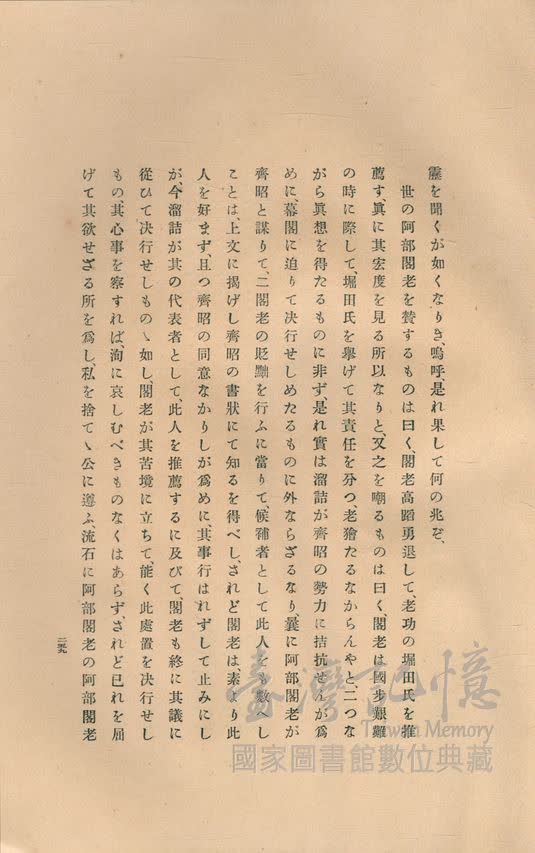 靂を聞くが如くなりき、嗚呼是れ果して何の兆ぞ、
世の阿部閣老を賛するものは曰く、閣老高蹈勇退して、老功の堀田氏を推
薦す、眞に其宏度を見る所以なりと、又之を嘲るものは曰く、閣老は國步艱難
の時に際して、堀田氏を擧げて其責任を分つ、老獪たるなからんやと、二つな
がら眞想を得たるものに非ず、是れ實は溜詰が齊昭の勢力に拮抗せんが爲
めに、幕閣に迫りて決行せしめたるものに外ならざるなり、曩に阿部閣老が
齊昭と謀りて、二閣老の貶黜を行ふに當りて、候補者として此人をも數へし
ことは、上文に揭げし齊昭の書狀にて知るを得べし、されど閣老は、素より此
人を好まず、且つ齊昭の同意なかりしが爲めに、其事行はれずして止みにし
が、今溜詰が其の代表者として、此人を推薦するに及びて、閣老も終に其議に
從ひて決行せしものゝ如し、閣老が其苦境に立ちて、能く此處置を決行せし
もの其心事を察すれば、洵に哀しむべきものなくはあらず、されど已れを屈
げて其欲せざる所を爲し私を捨てゝ公に遵ふ、流石に阿部閣老の阿部閣老
二五九
臺灣記憶
Taiwan Memory
國家圖書館數位典藏